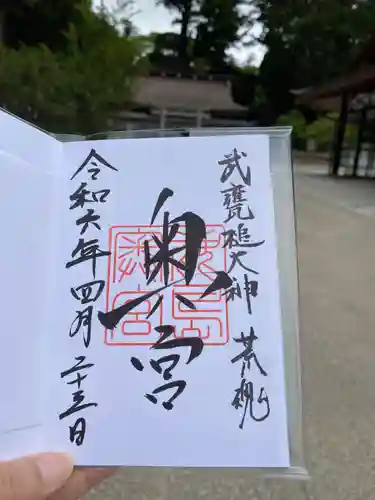 武甕槌大神 荒魂
奥宮
令和六年四月二十三日